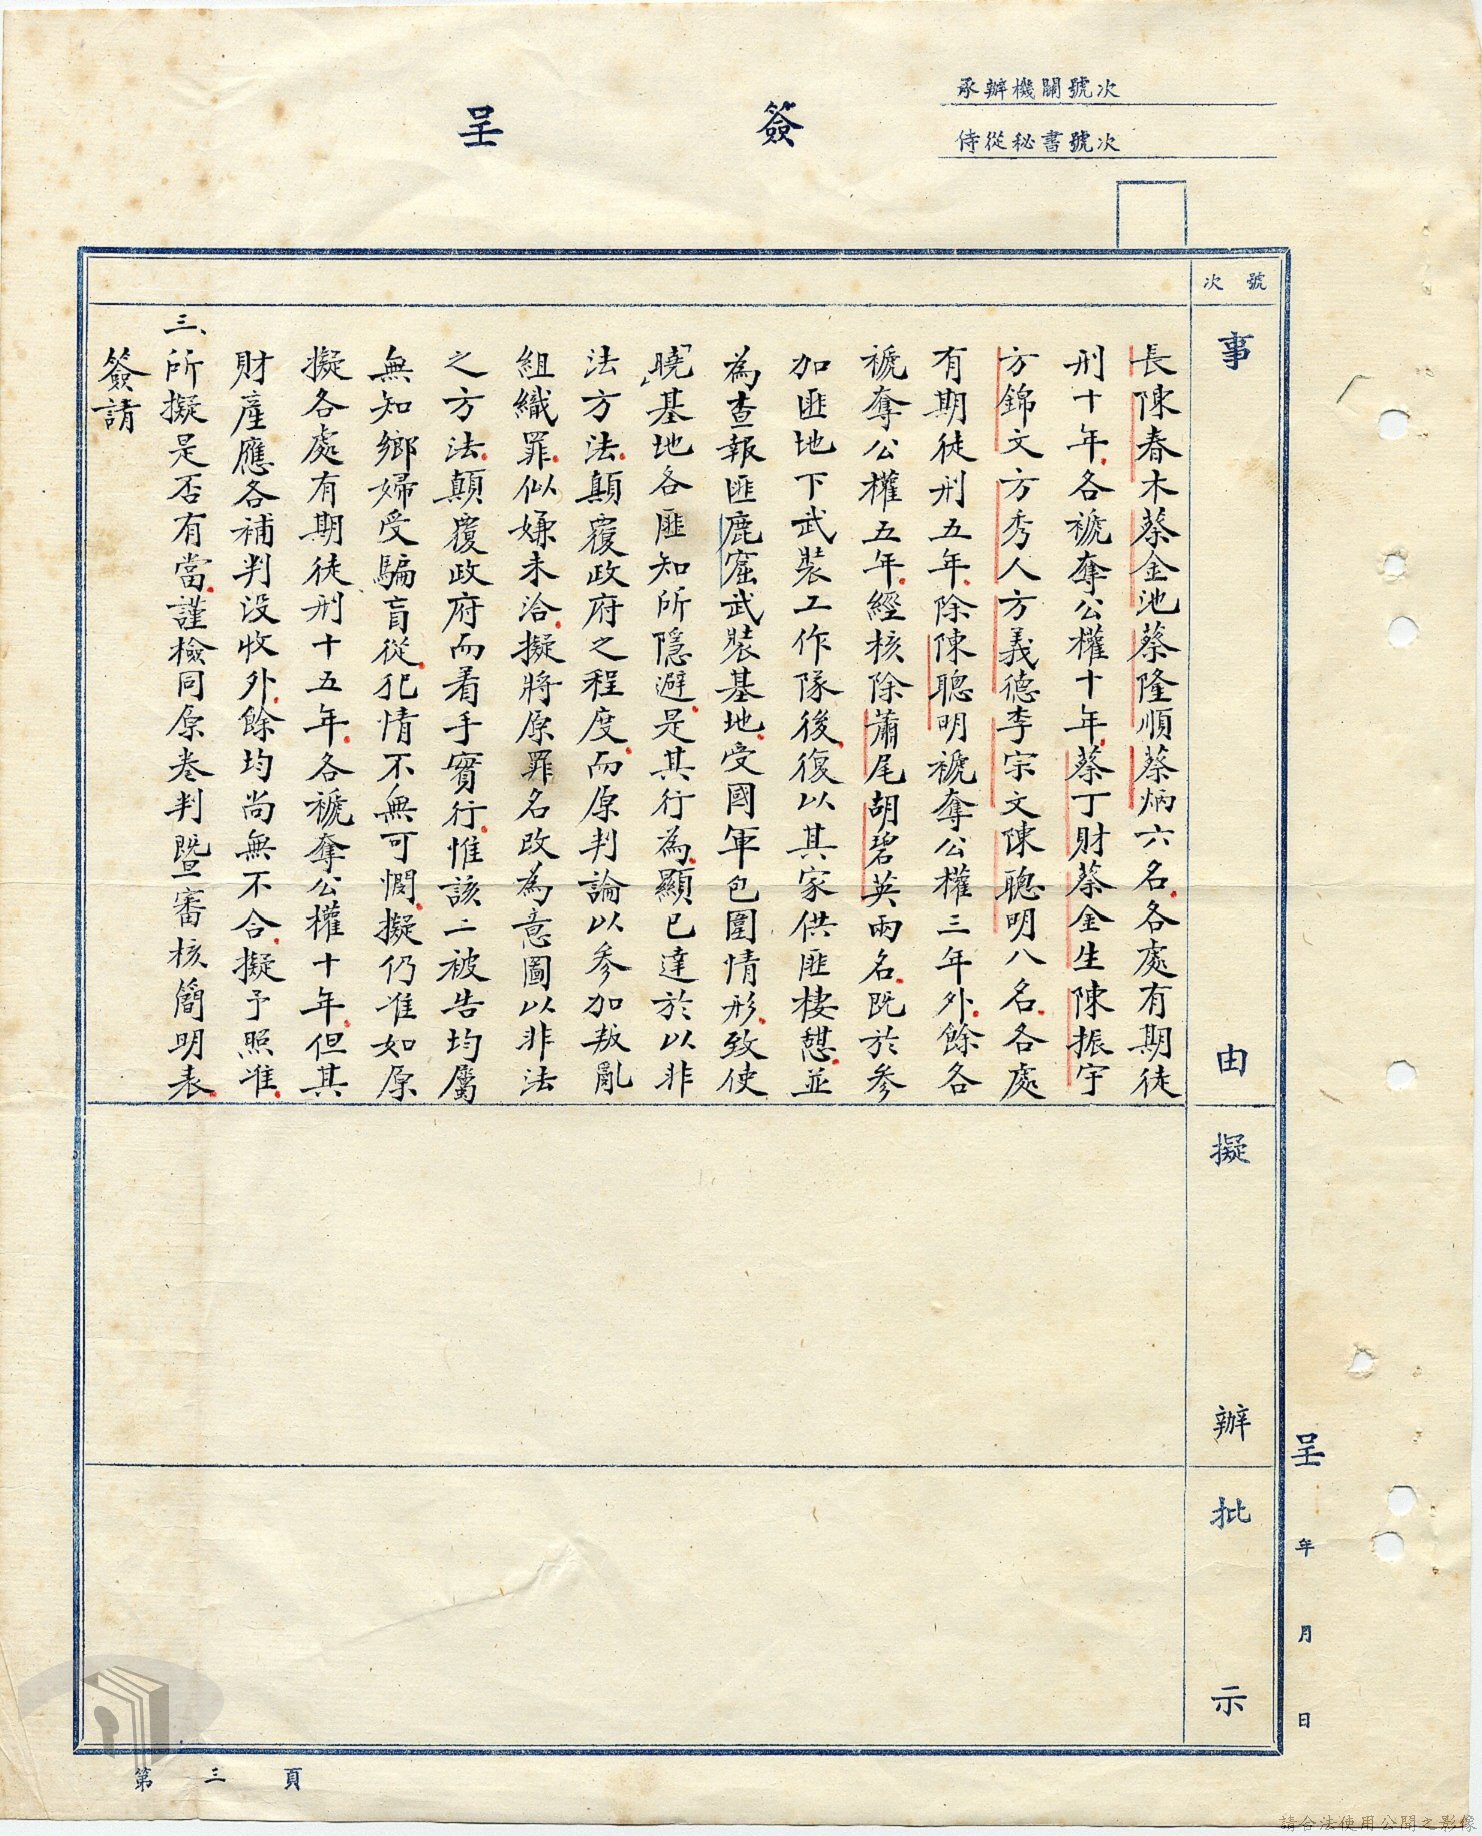 承辦機關號次
侍從秘書號次
簽呈
號次
事由
擬辦
批示
長陳春木蔡金池蔡隆順蔡炳六名各處有期徒
刑十年各褫奪公權十年蔡丁財蔡金生陳振宇
方錦文方秀人方義德李宗文陳聰明八名各處
有期徒刑五年除陳聰明褫奪公權三年外餘各
褫奪公權五年經核除蕭尾胡碧英兩名既於參
加匪地下武裝工作隊後復以其家供匪棲憩並
為查報匪鹿窟武裝基地受國軍包圍情形致使
「曉」基地各匪知所隱避是其行為顯已達於以非
法方法顛覆政府之程度而原判論以參加叛亂
組織罪似嫌未洽擬將原罪名改為意圖以非法
之方法顛覆政府而着手實行惟該二被告均屬
無知鄉婦受騙盲從犯情不無可憫擬仍准如原
擬各處有期徒刑十五年各褫奪公權十年但其
財產應各補判沒收外餘均尚無不合擬予照准
三、所擬是否有當謹檢同原卷判暨審核簡明表
簽請
呈 年 月 日
第三頁
請合法使用公開之影像